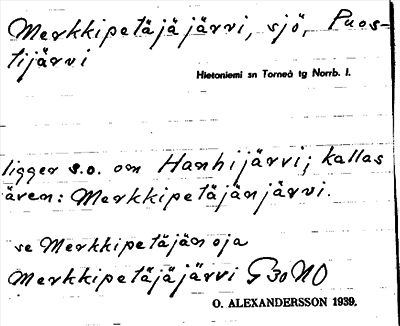 Merkkipetäjäjärvi, sjö, Puos-
tijärvi
Hietaniemi sn Torneå tg Norrb. l.
ligger s.o. om Hanhijärvi; kallas
även: Merkkipetäjänjärvi.
se Merkkipetäjänoja
Merkkipetäjäjärvi G30NO
O. ALEXANDERSSON 1939.